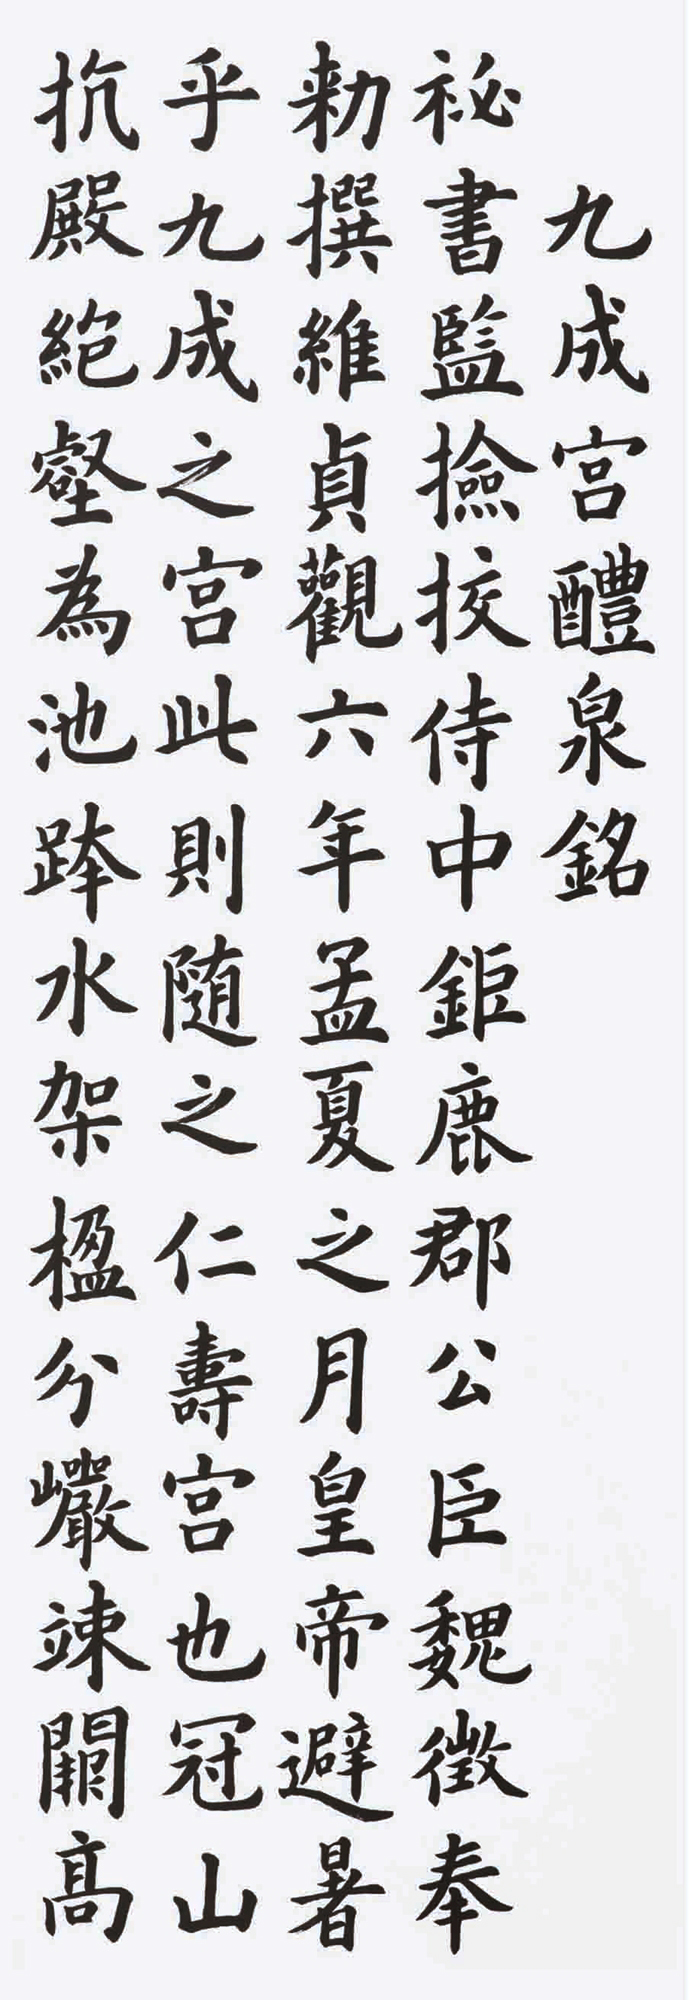 九成宮醴泉銘
祕書監撿挍侍中鉅鹿郡公臣魏徵奉
勑撰維貞觀六年孟夏之月皇帝避暑
乎九成之宮此則随之仁壽宮也冠山
抗殿絶壑為池跨水架楹分巖竦闕髙